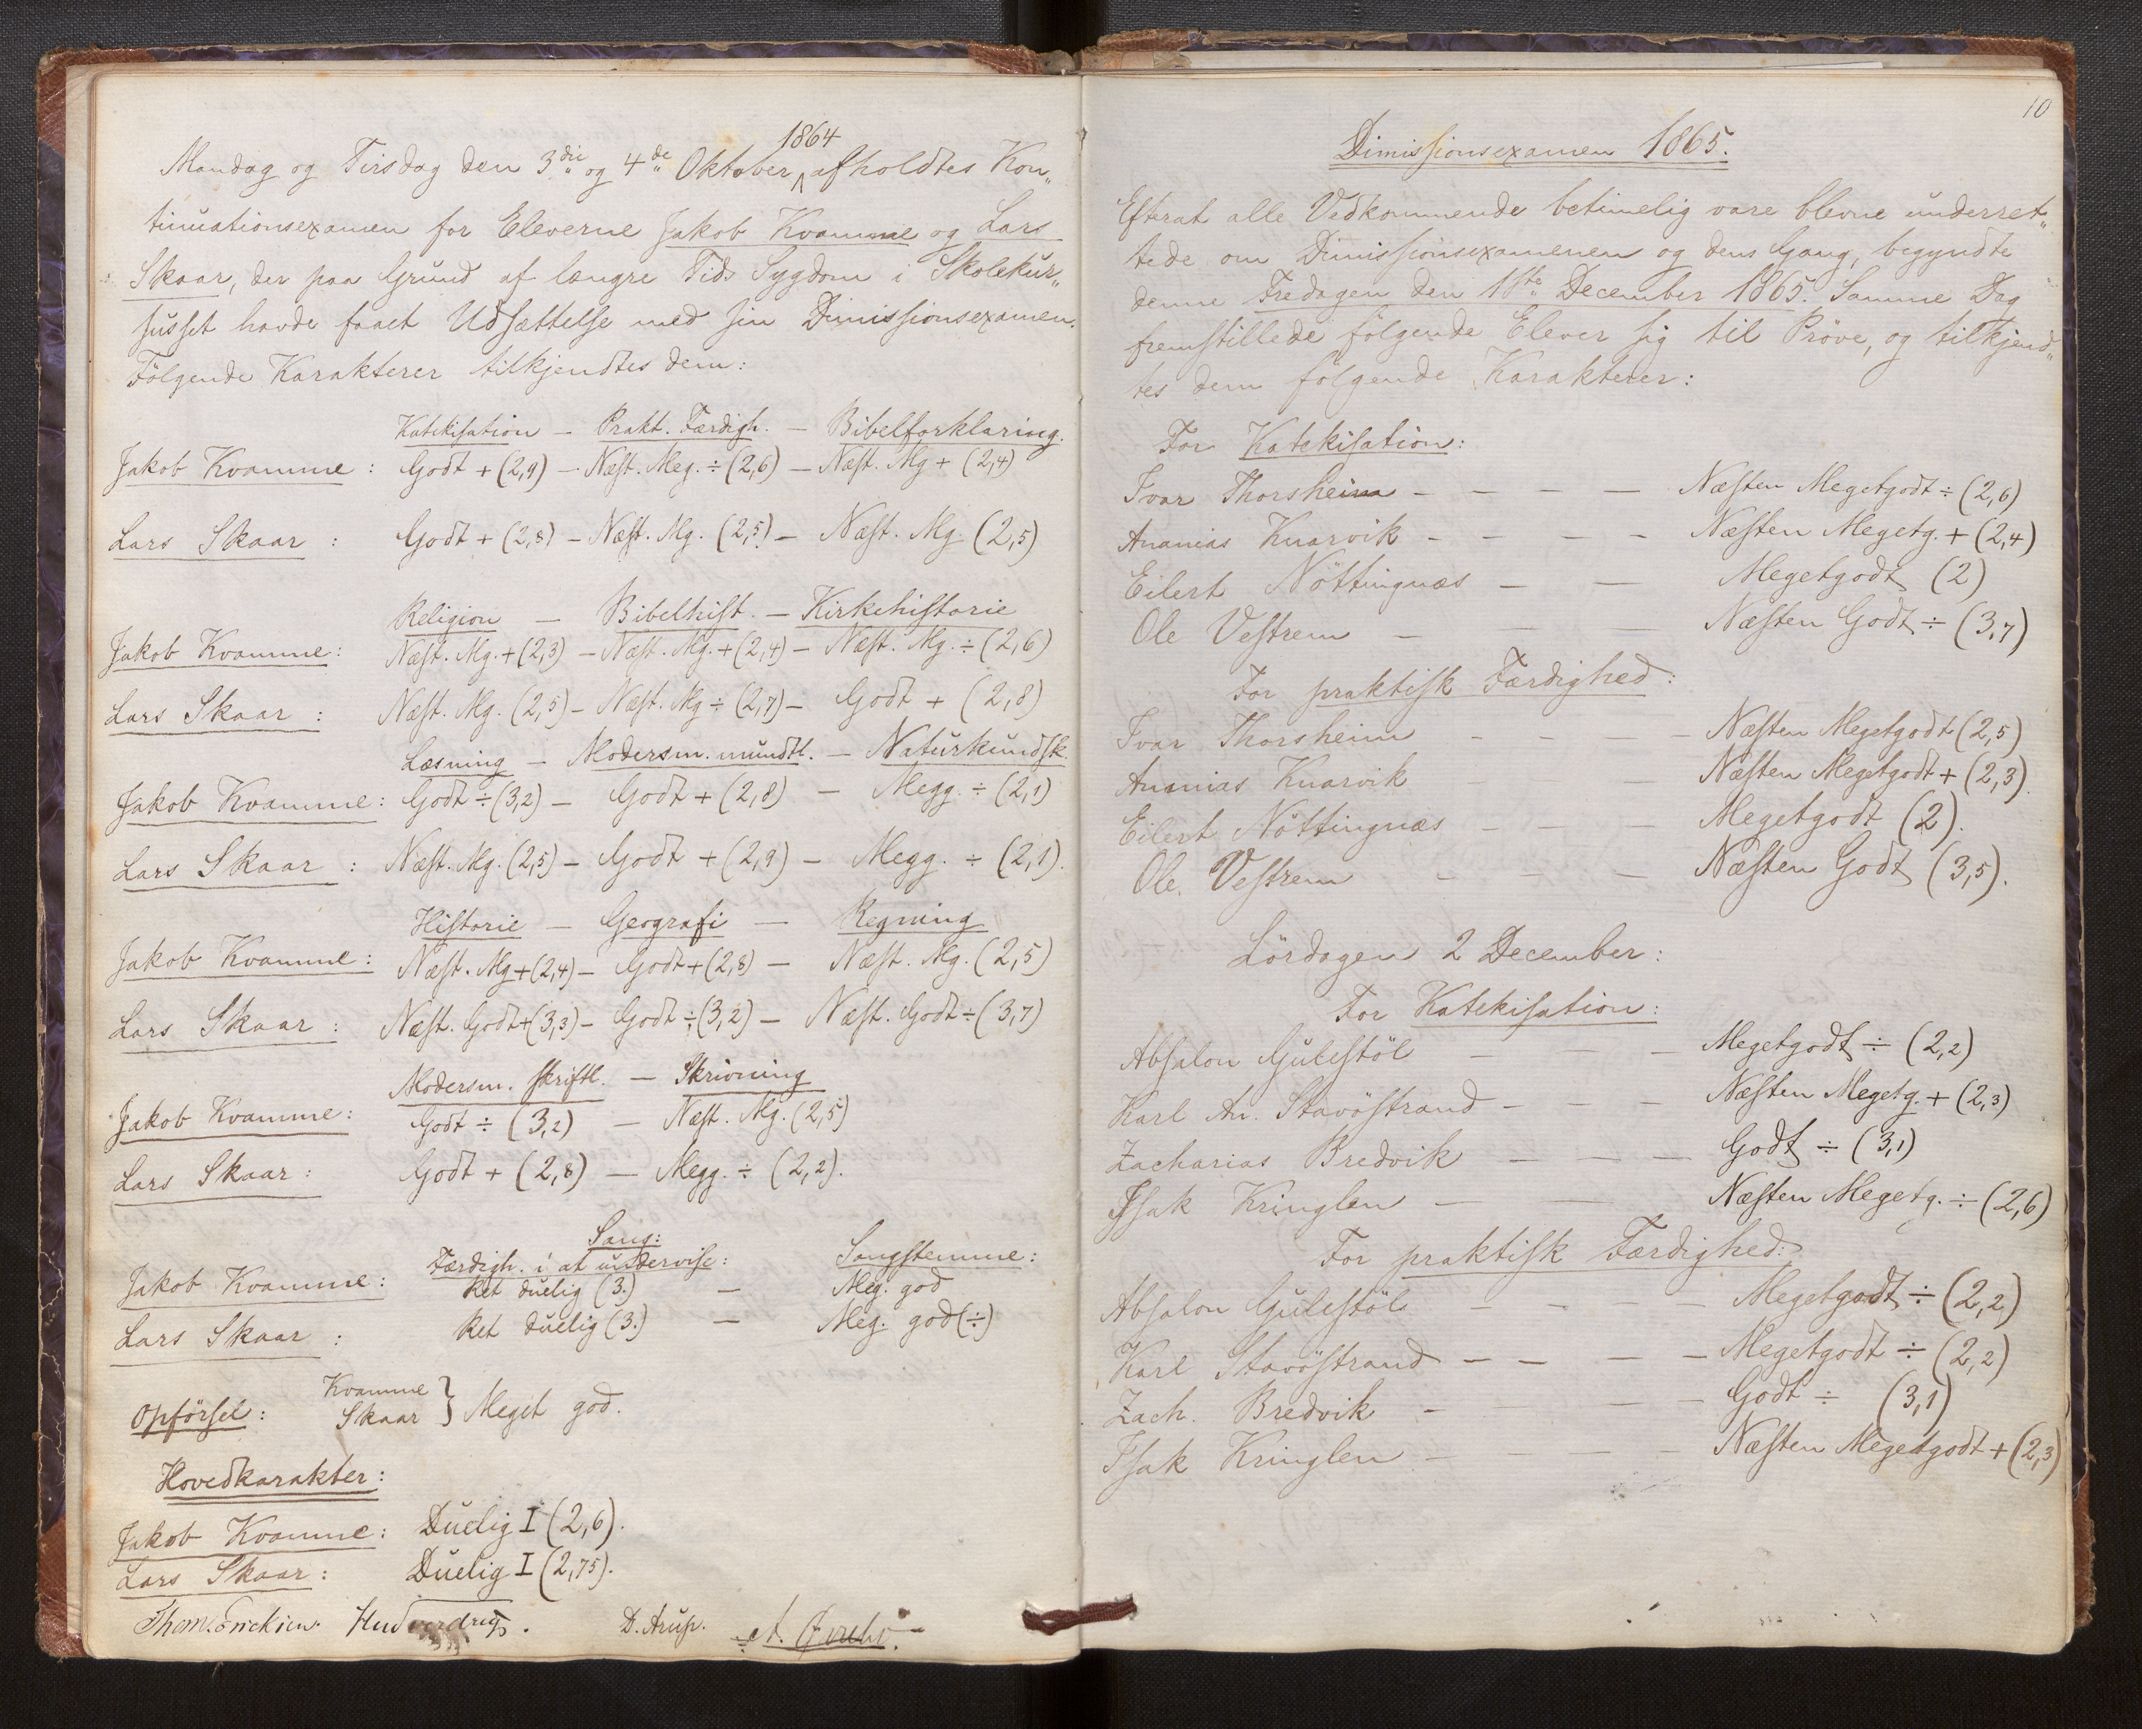 1864
Mandag og Tirsdag den 3die og 4de Oktober afholdtes Kon„
tinuationsexamen for Eleverne Jakob Kvamme og Lars
Skaar, der paa Grund af længre Tids Sygdom i Skolekur„
suset havde faaet Udsættelse med sin Dimissionsexamen.
Følgende Karakterer tilkjendtes dem:
Katekisation – Prakt. Færdigh. – Bibelforklaring.
Jakob Kvamme: Godt + (2,9) – Næst. Meg. ÷ (2,6) – Næst. Mg + (2,4)
Lars Skaar: Godt + (2,8) – Næst. Mg. (2,5) – Næst. Mg. (2,5)
Religion – Bibelhist. – Kirkehistorie
Jakob Kvamme: Næst. Mg. + (2,3) – Næst. Mg. + (2,4) – Næst. Mg. ÷ (2,6)
Lars Skaar: Næst. Mg. (2,5) – Næst. Mg ÷ (2,7) – Godt + (2,8)
Læsning – Modersm. mundtl. – Naturkundsk.
Jakob Kvamme: Godt ÷ (3,2) – Godt + (2,8) – Megg. ÷ (2,1)
Lars Skaar: Næst. Mg. (2,5) – Godt + (2,9) – Megg. ÷ (2,1).
Historie – Geografi – Regning
Jakob Kvamme: Næst. Mg + (2,4) – Godt + (2,8) – Næst. Mg. (2,5)
Lars Skaar: Næst. Godt + (3,3) – Godt ÷ (3,2) – Næst. Godt ÷ (3,7)
Modersm. skriftl. – Skrivning
Jakob Kvamme: Godt ÷ (3,2) – Næst. Mg. (2,5)
Lars Skaar: Godt + (2,8) – Megg. ÷ (2,2).
Sang:
Færdigh. i at undervise: Sangstemme:
Jakob Kvamme: Ret duelig (3.) – Meg. god
Lars Skaar: Ret duelig (3.) – Meg. god (÷)
Opførsel: Kvamme Skaar } Meget god.
Hovedkarakter:
Jakob Kvamme: Duelig I (2,6).
Lars Skaar: Duelig I (2,75).
Thom. Erichsen. D. Arup.
10
Dimissionsexamen 1865.
Efterat alle Vedkommende betimelig vare blevne underret„
tede om Dimissionsexamenen og dens Gang, begyndte
denne Fredagen den 1ste December 1865. Samme Dag
fremstillede følgende Elever sig til Prøve, og tilkjend„
tes dem følgende Karakterer:
For Katekisation:
Ivar Thorsheim – – – – Næsten Megetgodt ÷ (2,6)
Ananias Knarvik – – – – Næsten Megetg. + (2,4)
Eilert Nøttingnæs – – Megetgodt (2)
Ole Vestrem – – – Næsten Godt ÷ (3,7)
For praktisk Færdighed:
Ivar Thorsheim – – – – Næsten Megetgodt (2,5)
Ananias Knarvik – – – Næsten Megetgodt + (2,3).
Eilert Nøttingnæs – – – Megetgodt (2).
Ole Vestrem – – – Næsten Godt (3,5).
Lørdagen 2 December:
For Katekisation:
Absalon Gulestøl – – – Megetgodt ÷ (2,2)
Karl An. Stavøstrand – – – Næsten Megetg. + (2,3)
Zacharias Bredvik – – – Godt ÷ (3,1)
Isak Kringlen – – Næsten Megetg. ÷ (2,6)
For praktisk Færdighed:
Absalon Gulestøl – – – – Megetgodt ÷ (2,2)
Karl Stavøstrand – – – – Megetgodt ÷ (2,2)
Zach. Bredvik – – – – Godt ÷ (3,1)
Isak Kringlen – – – – Næsten Megetgodt + (2,3)